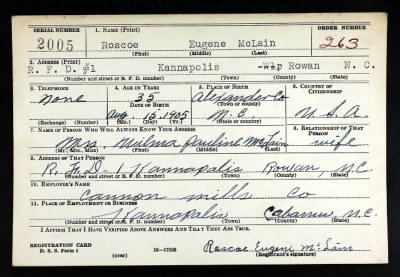 SERIAL NUMBER 1. NAME (Print) ORDER NUMBER
2005 Roscoe Eugene McLain 263
(First) (Middle) (Last)
2. ADDRESS (Print)
R. F. D. #1 Kannapolis Rowan N. C.
(Number and street or R. F. D. number) (Town) (County) (State)
3. TELEPHONE 4. AGE IN YEARS 5. PLACE OF BIRTH 6. COUNTRY OF CITIZENSHIP
None 35 Alexander Co
DATE OF BIRTH (Town or county)
Aug. 15, 1905 N.C. U.S.A.
(Exchange) (Number) (Mo.) (Day) (Yr.) (State or country)
7. NAME OF PERSON WHO WILL ALWAYS KNOW YOUR ADDRESS 8. RELATIONSHIP OF THAT PERSON
Mrs. Pauline McLain wife
(Mr., Mrs., Miss) (First) (Middle) (Last)
9. ADDRESS OF THAT PERSON
R. F. D-1 Kannapolis Rowan, N.C.
(Number and street or R. F. D. number) (Town) (County) (State)
10. EMPLOYER'S NAME
Cannon mills Co
11. PLACE OF EMPLOYMENT OR BUSINESS
Kannapolis Cabarrus, N.C.
(Number and street or R. F. D. number) (Town) (County) (State)
I AFFIRM THAT I HAVE VERIFIED ABOVE ANSWERS AND THAT THEY ARE TRUE.
REGISTRATION CARD
D. S. S. Form 1 (over) 16-17105 Roscoe Eugene McLain
(Registrant's signature)